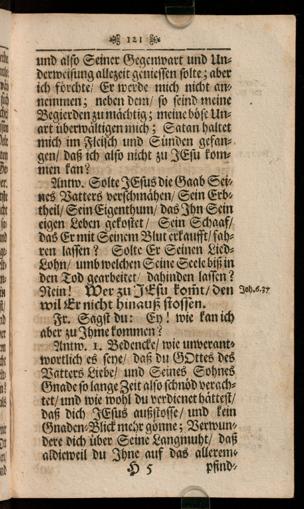 121
und also Seiner Gegenwart und Un-
derweisung allezeit geniessen solte; aber
ich förchte/ Er werde mich nicht an-
nemmen; neben dem/ so seind meine
Begierden zu mächtig; meine böse Un-
art überwältigen mich; Satan haltet
mich im Fleisch und Sünden gefan-
gen/ daß ich also nicht zu JEsu kom-
men kan?
Antw. Solte JEsus die Gaab Sei-
nes Vatters verschmähen/ Sein Erb-
theil/ Sein Eigenthum/ das Ihn Sein
eigen Leben gekostet/ Sein Schaaf/
das Er mit Seinem Blut erkaufft/ fah-
ren lassen? Solte Er Seinen Lied-
Lohn/ umb welchen Seine Seele biß in
den Tod gearbeitet/ dahinden lassen?
Nein! Wer zu JEsu kom̃t/ den
wil Er nicht hinauß stossen.
Joh. 6.37
Fr. Sagst du: Ey! wie kan ich
aber zu Ihme kommen?
Antw. 1. Bedencke/ wie unverant-
wortlich es seye/ daß du GOttes des
Vatters Liebe/ und Seines Sohnes
Gnade so lange Zeit also schnöd verach-
tet/ und wie wohl du verdienet hättest/
daß dich JEsus außstosse/ und kein
Gnaden-Blick mehr gönne; Verwun-
dere dich über Seine Langmuht/ daß
aldieweil du Ihne auf das allerem-
H 5 pfind-